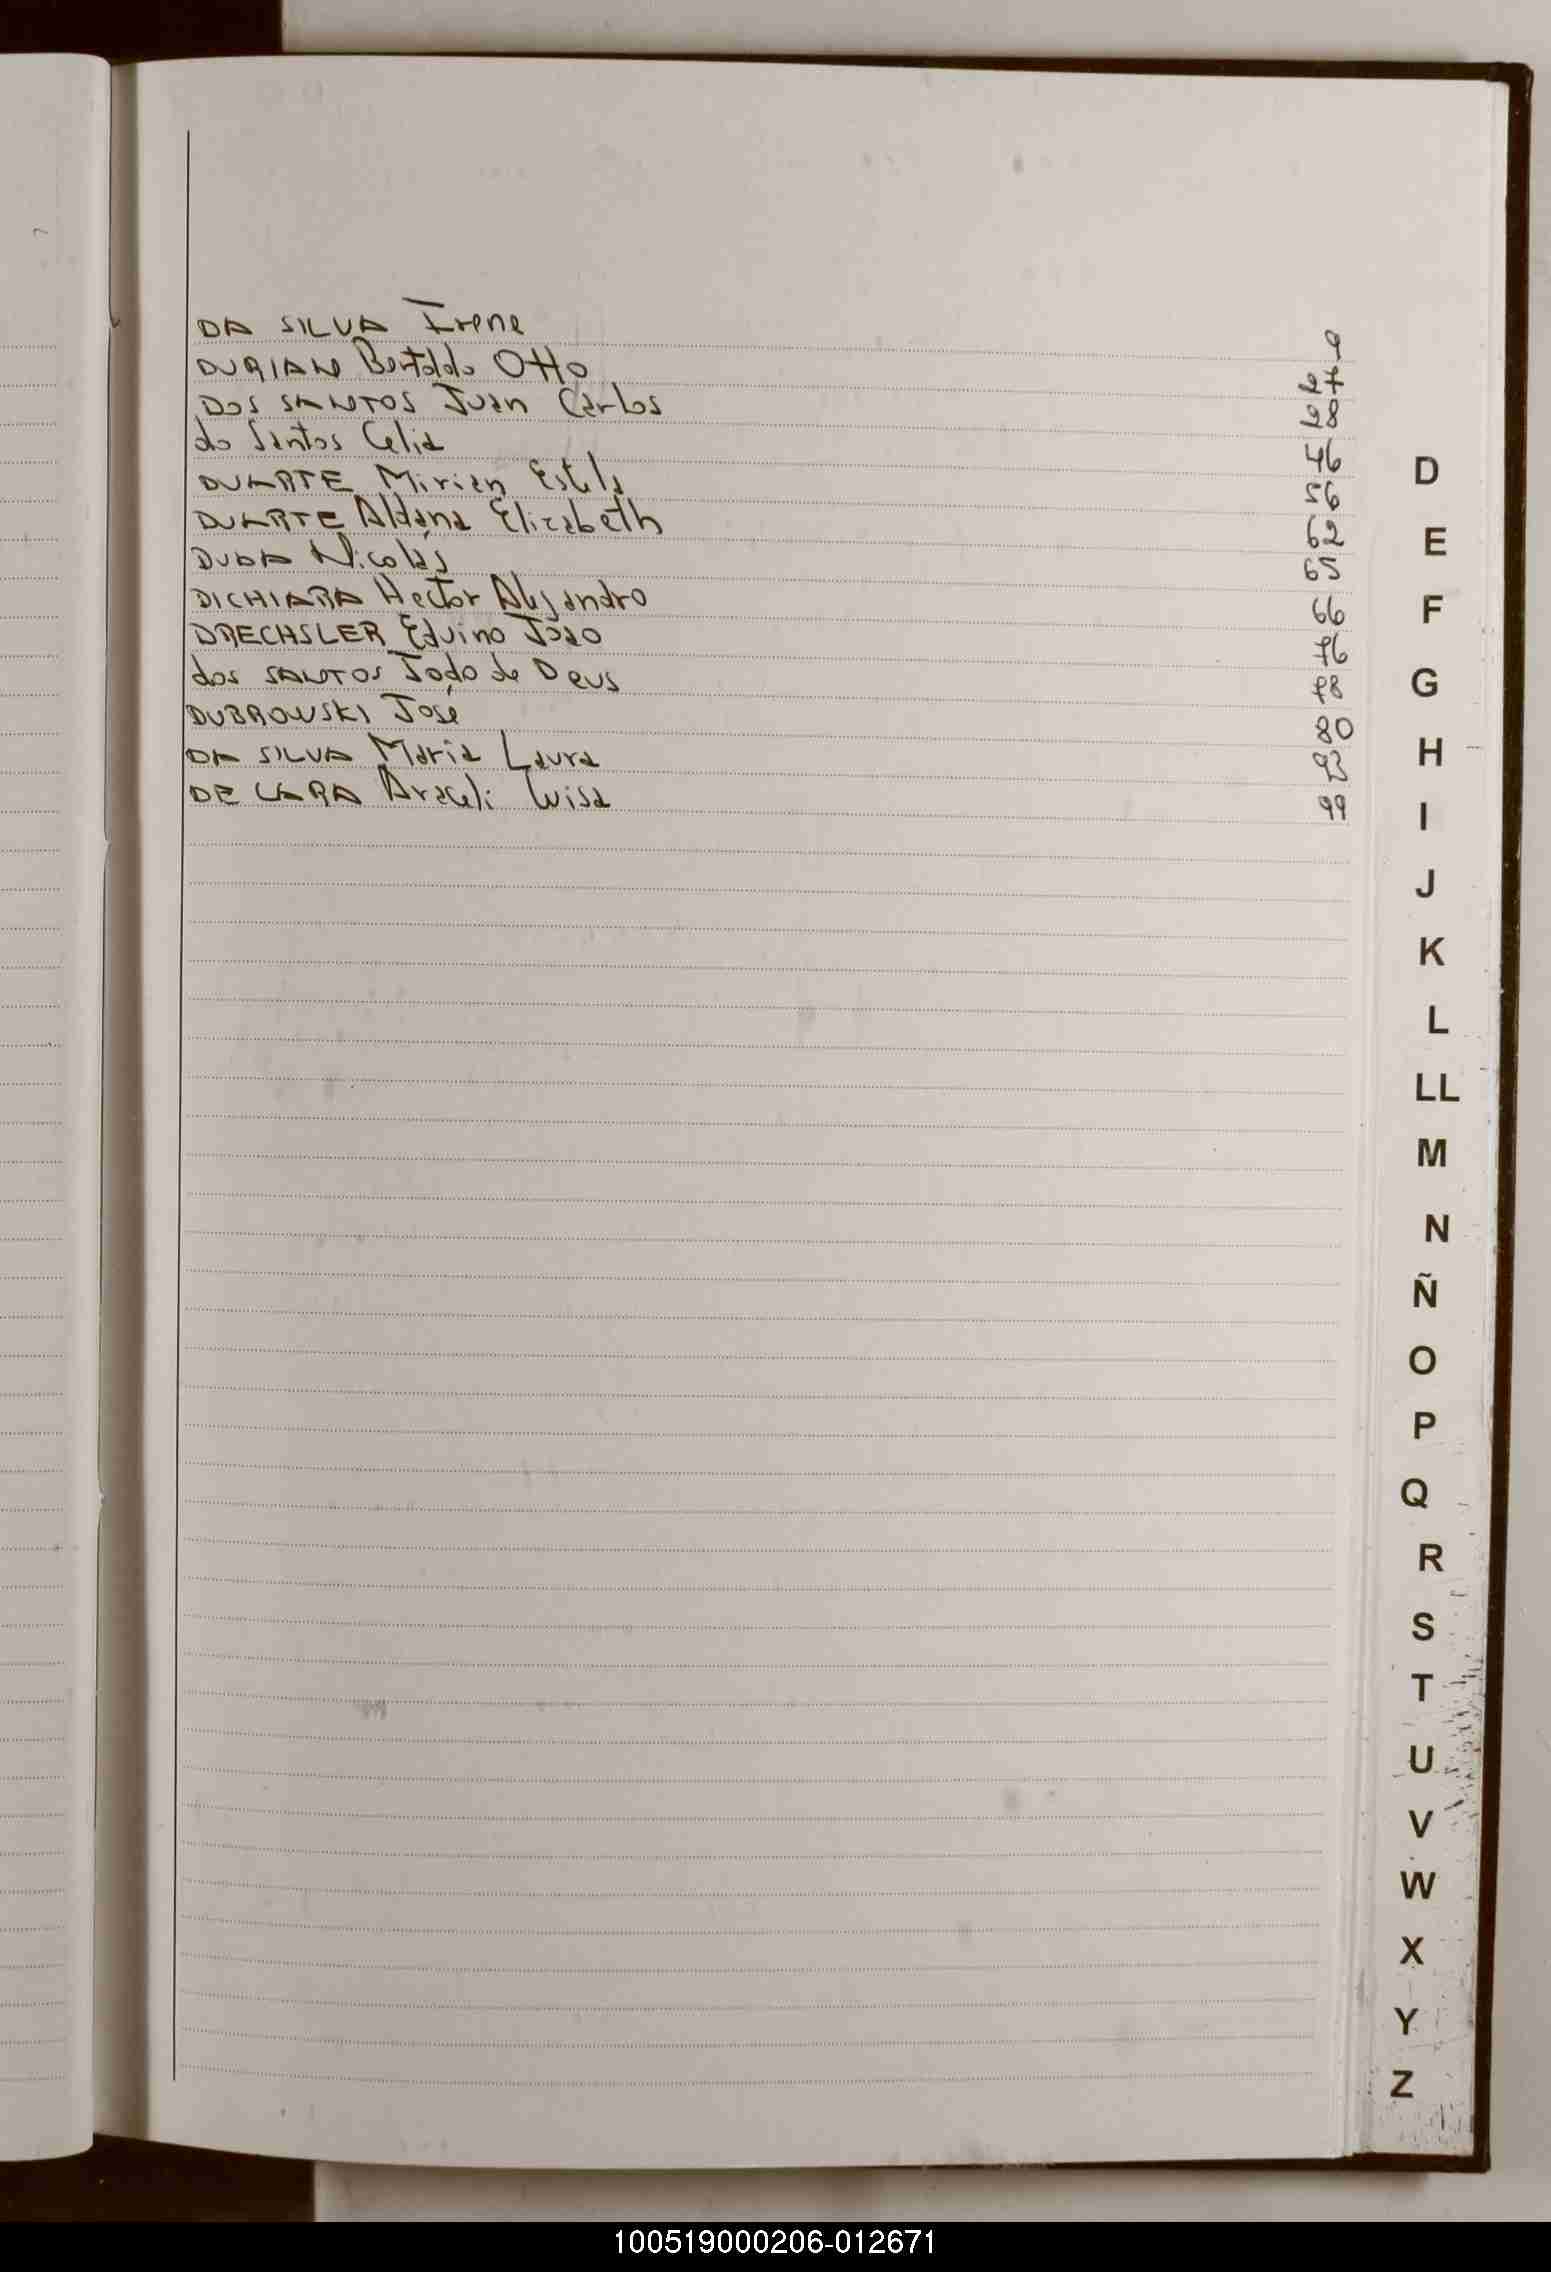 DA SILVA Irene 9
DURIAN Bertoldo Otto 27
DOS SANTOS Juan Carlos 28
do Santos Celia 46
DUARTE Mirian Estela 56
DUARTE Aldana Elizabeth 62
DUDA Nicolás 65
DICHIARA Hector Alejandro 66
DRECHSLER Edvino João 76
dos SANTOS João de Deus 78
DUBROWSKI José 80
DA SILVA Maria Laura 93
DE LARA Araceli Luisa 99
D
E
F
G
H
I
J
K
L
LL
M
N
Ñ
O
P
Q
R
S
T
U
V
W
X
Y
Z
100519000206-012671